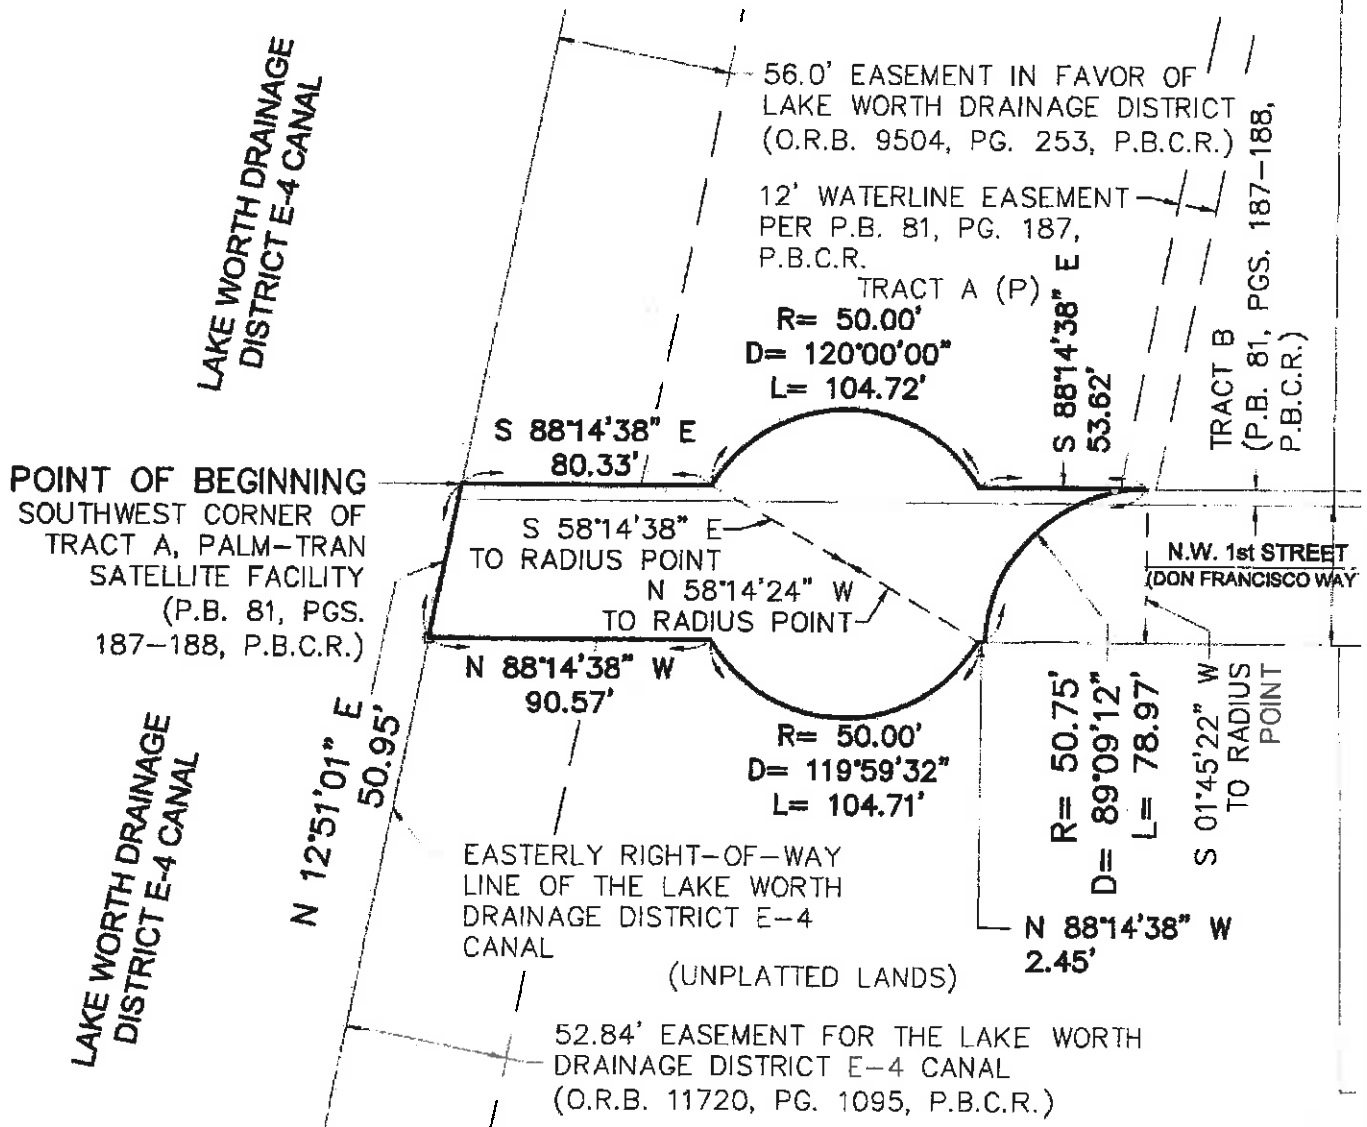 LAKE WORTH DRAINAGE
DISTRICT E-4 CANAL
56.0' EASEMENT IN FAVOR OF
LAKE WORTH DRAINAGE DISTRICT
(O.R.B. 9504, PG. 253, P.B.C.R.)
12' WATERLINE EASEMENT
PER P.B. 81, PG. 187,
P.B.C.R.
TRACT A (P)
R= 50.00'
D= 120°00'00"
L= 104.72'
S 88°14'38" E
53.62'
TRACT B
(P.B. 81, PGS. 187-188,
P.B.C.R.)
S 88°14'38" E
80.33'
POINT OF BEGINNING
SOUTHWEST CORNER OF
TRACT A, PALM-TRAN
SATELLITE FACILITY
(P.B. 81, PGS.
187-188, P.B.C.R.)
S 58°14'38" E
TO RADIUS POINT
N 58°14'24" W
TO RADIUS POINT
N.W. 1st STREET
(DON FRANCISCO WAY
N 88°14'38" W
90.57'
R= 50.00'
D= 119°59'32"
L= 104.71'
N 12°51'01" E
50.95'
R= 50.75'
D= 89°09'12"
L= 78.97'
S 01°45'22" W
TO RADIUS
POINT
N 88°14'38" W
2.45'
LAKE WORTH DRAINAGE
DISTRICT E-4 CANAL
EASTERLY RIGHT-OF-WAY
LINE OF THE LAKE WORTH
DRAINAGE DISTRICT E-4
CANAL
(UNPLATTED LANDS)
52.84' EASEMENT FOR THE LAKE WORTH
DRAINAGE DISTRICT E-4 CANAL
(O.R.B. 11720, PG. 1095, P.B.C.R.)